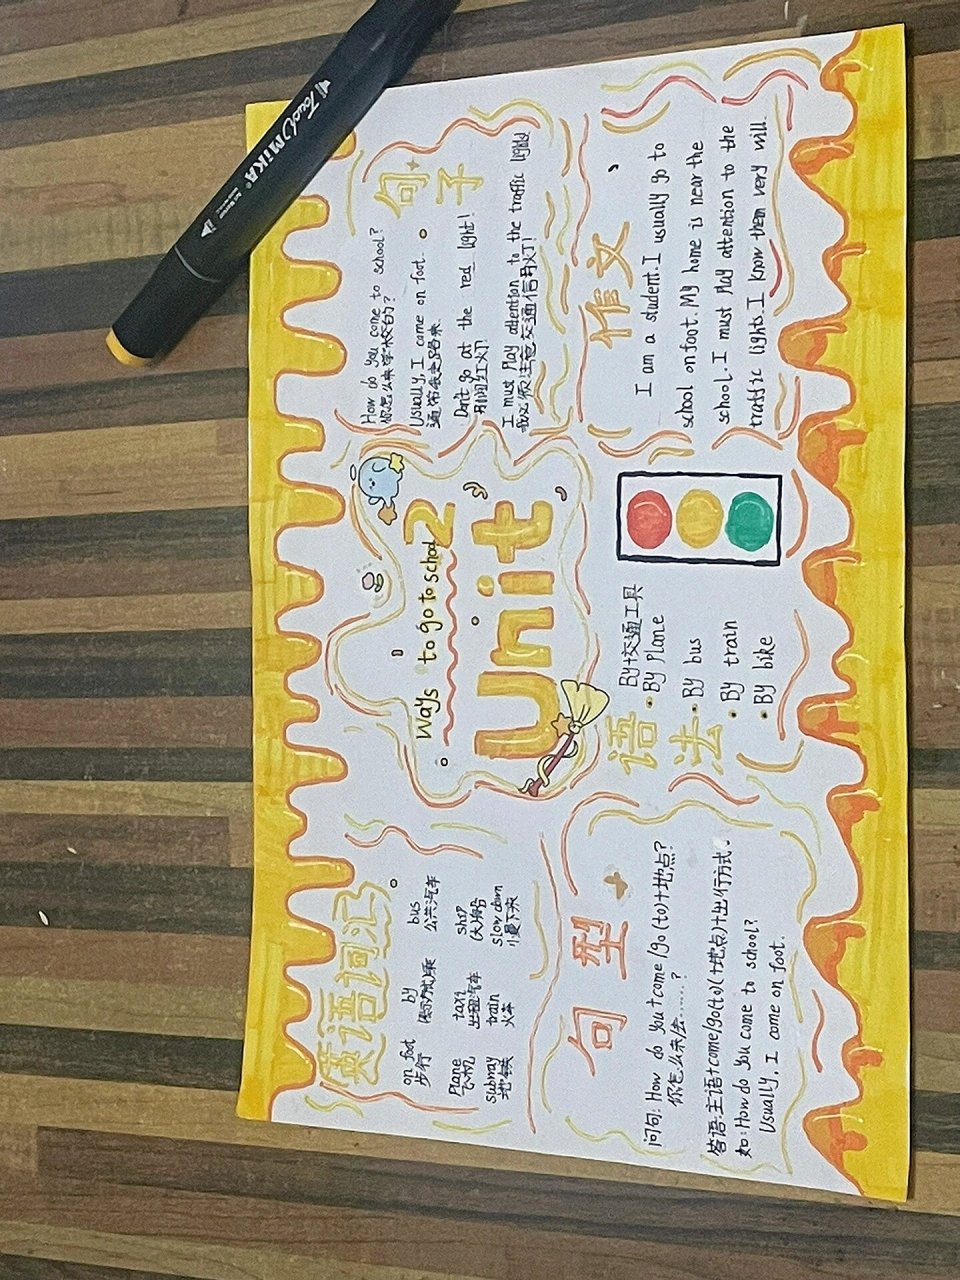 Touch MIKA®
英语词汇
on foot by bus
步行 (表示方式)乘 公共汽车
Plane taxi ship
飞机 出租汽车 (大)船
subway train slow down
地铁 火车 慢下来
Ways to go to school
Unit 2
句子
How do you come to school?
你怎么来学校的?
Usually, I come on foot.
通常我走路来.
Don't go at the red light!
别闯红灯!
I must Play attention to the traffic lights
我必须注意交通信号灯!
句型
问句: How do you+come/go(to)+地点?
你怎么来/去……?
答语:主语+come/go(to)(+地点)+出行方式.
如:How do you come to school?
Usually, I come on foot.
语法
By+交通工具
• By Plane
• By bus
• By train
• By bike
作文
I am a student. I usually go to
school on foot. My home is near the
school. I must Play attention to the
traffic lights. I know them very will.